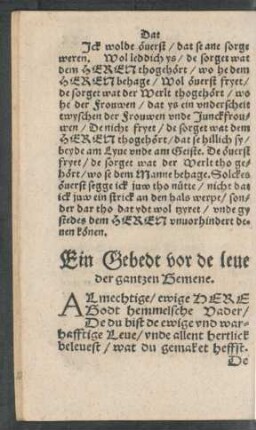 Dat
Jck wolde öuerst / dat se ane sorge
weren. Wol leddich ys / de sorget wat
dem HEREN thogehört / wo he dem
HEREN behage / Wol öuerst fryet /
de sorget wat der Werlt thogehört / wo
he der Frouwen / dat ys ein vnderscheit
twyschen der Frouwen vnde Junckfrou-
wen / De nicht fryet / de sorget wat dem
HEREN thogehört / dat se hillich sy /
beyde am Lyue vnde am Geiste. De öuerst
fryet / de sorget wat der Werlt tho ge-
hört / wo se dem Manne behage. Solckes
öuerst segge ick juw tho nütte / nicht dat
ick juw ein strick an den hals werpe / son-
der dar tho dat ydt wol tzyret / vnde gy
stedes dem HEREN vnuorhindert de-
nen können.
Ein Gebedt vor de leue
der gantzen Gemene.
ALmechtige / ewige HERE
Godt hemmelsche Vader /
De du bist de ewige vnd war-
hafftige Leue / vnde allent hertlick
beleuest / wat du gemaket heffst.
De